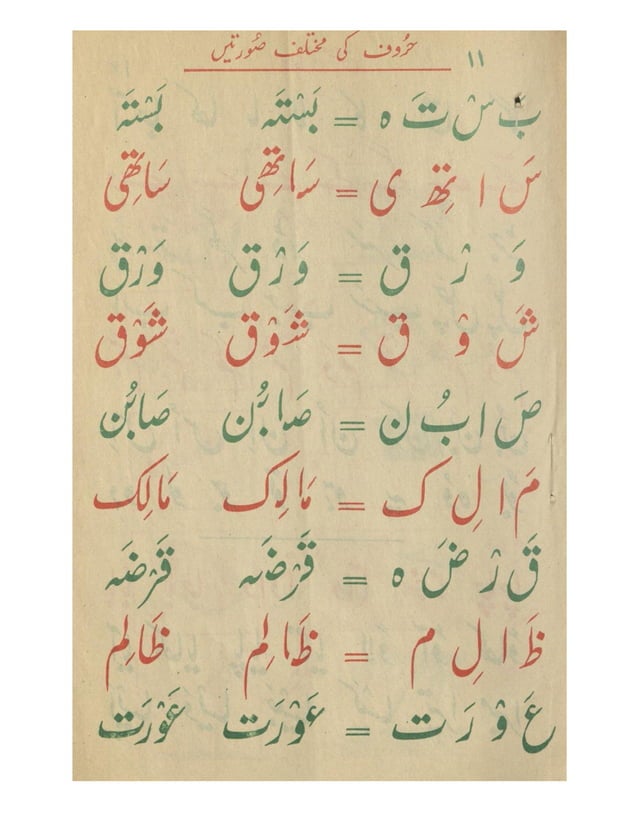 حُروف کی مختلف صُورتیں ۱۱
بَ سْ تَ ہ = بَسْتَہ بَسْتَہ
سَ ا تِھ ی = سَاتِھی سَاتِھی
وَ رْ ق = وَرْق وَرْق
شَ وْ ق = شَوْق شَوْق
صَ ا بُ ن = صَابُن صَابُن
مَ ا لِ ک = مَالِک مَالِک
قَ رْ ضَ ہ = قَرْضَہ قَرْضَہ
ظَ ا لِ م = ظَالِم ظَالِم
عَ وْ رَ ت = عَوْرَت عَوْرَت